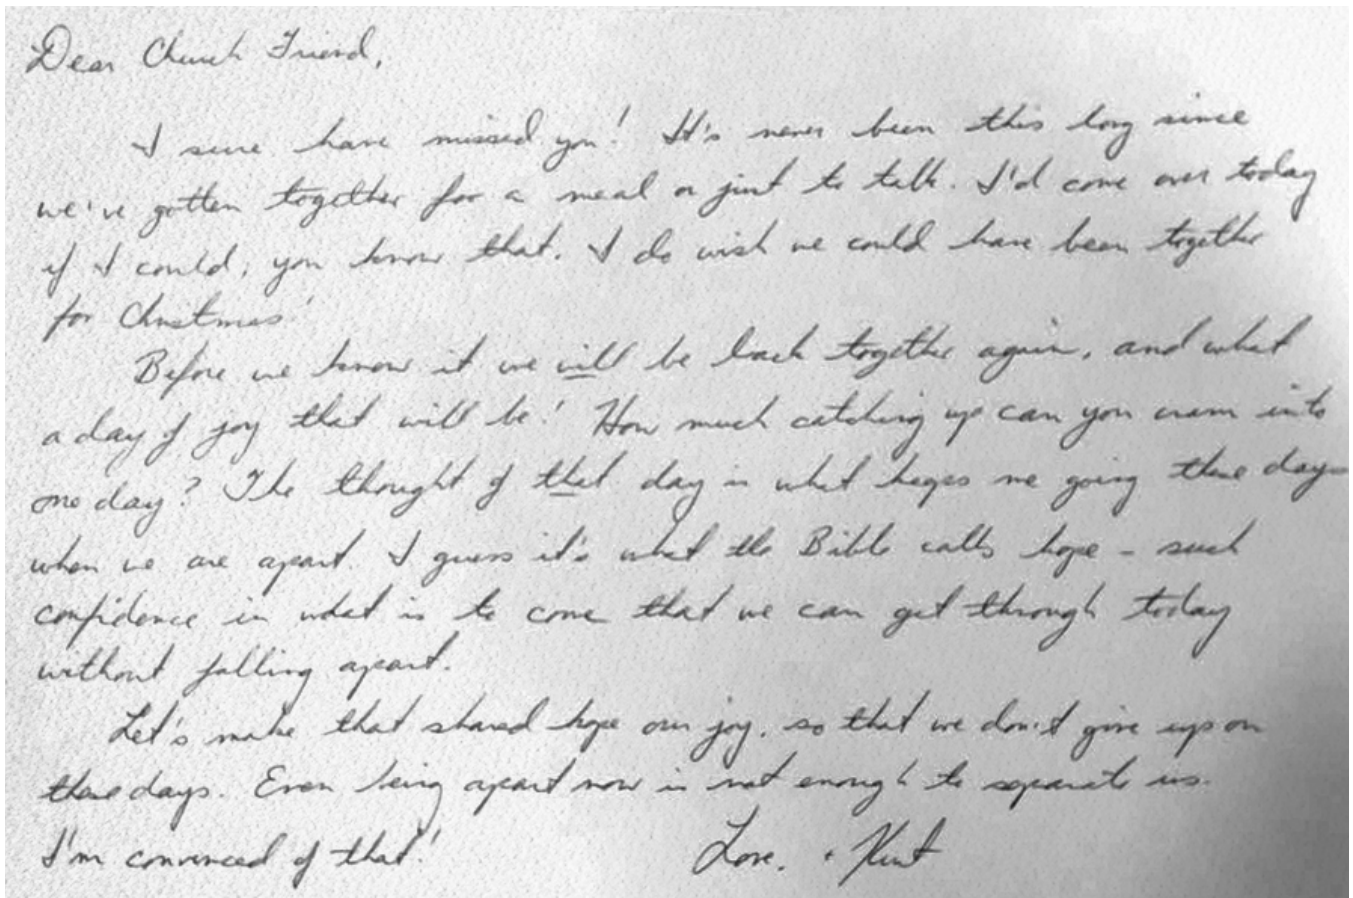 Dear Church Friend,
I sure have missed you! It's never been this long since
we've gotten together for a meal or just to talk. I'd come over today
if I could; you know that. I do wish we could have been together
for Christmas!
Before we know it we will be back together again, and what
a day of joy that will be! How much catching up can you cram into
one day? The thought of that day is what keeps me going these days
when we are apart. I guess it's what the Bible calls hope - such
confidence in what is to come that we can get through today
without falling apart.
Let's make that shared hope our joy, so that we don't give up on
these days. Even being apart now is not enough to separate us.
I'm convinced of that!
Love, + Kent